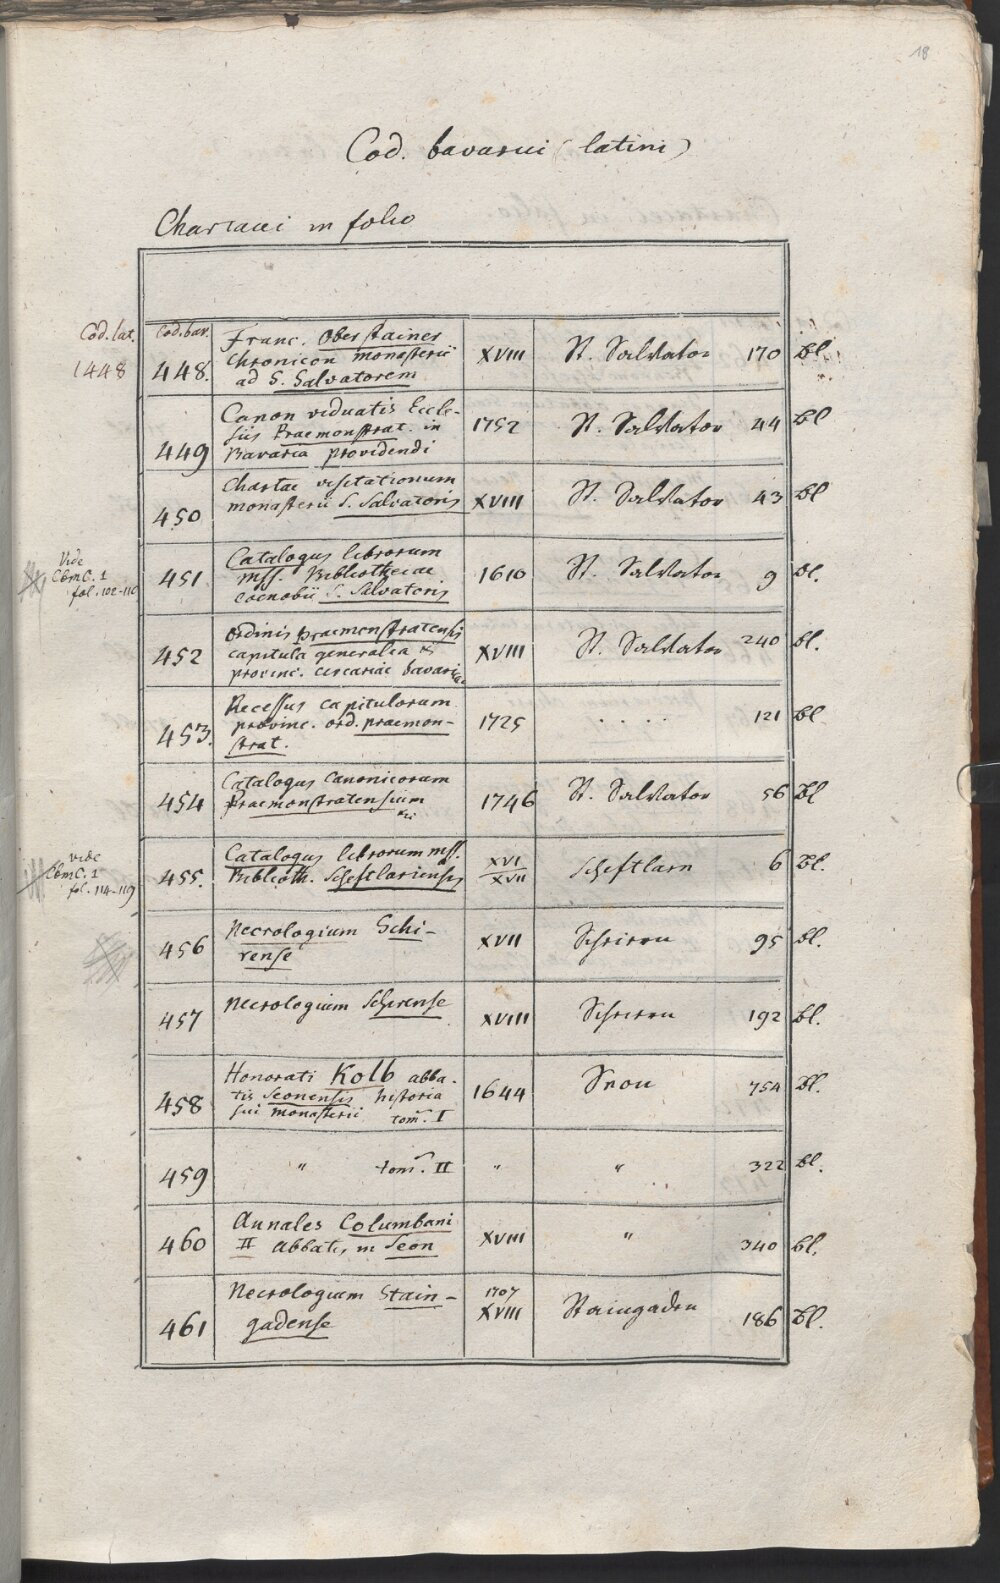 18
Cod. bavarici (latini)
Chartacei in folio
Cod. lat. Cod. bav. Franc. Oberstainer
1448 448. Chronicon monasterii XVIII St. Salvator 170 Bl.
ad S. Salvatorem
Canon viduatis Eccle-
449 siis Praemonstrat. in 1752 St. Salvator 44 Bl
Bavaria providendi
Chartae visitationum
450 monasterii S. Salvatoris XVIII St. Salvator 43 Bl
Vide
CbmC. 1
fol. 102-110
Catalogus librorum
451 mss. Bibliothecae 1610 St. Salvator 9 Bl.
coenobii S. Salvatoris
Ordinis praemonstratensis
452 capitula generalia & XVIII St. Salvator 240 Bl.
provinc. circariae bavaricae
Recessus capitulorum
453. provinc. ord. praemon- 1725 . . . . 121 Bl
strat.
Catalogus Canonicorum
454 Praemonstratensium 1746 St. Salvator 56 Bl
vide
CbmC. 1
fol. 114-119
Catalogus librorum mss.
455. Biblioth. Scheftlariensis XVI XVII Scheftlarn 6 Bl.
Necrologium Schi-
456 rense XVII Scheiern 95 Bl.
457 Necrologium Schirense XVIII Scheiern 192 Bl.
Honorati Kolb abba-
458 tis Seonensis historia 1644 Seon 754 Bl.
sui monasterii tom. I
459 " tom. II " " 322 Bl.
Annales Columbani
460 II Abbatis in Seon XVIII " 340 Bl.
Necrologium Stain- 1707
461 gadense XVIII Staingaden 186 Bl.